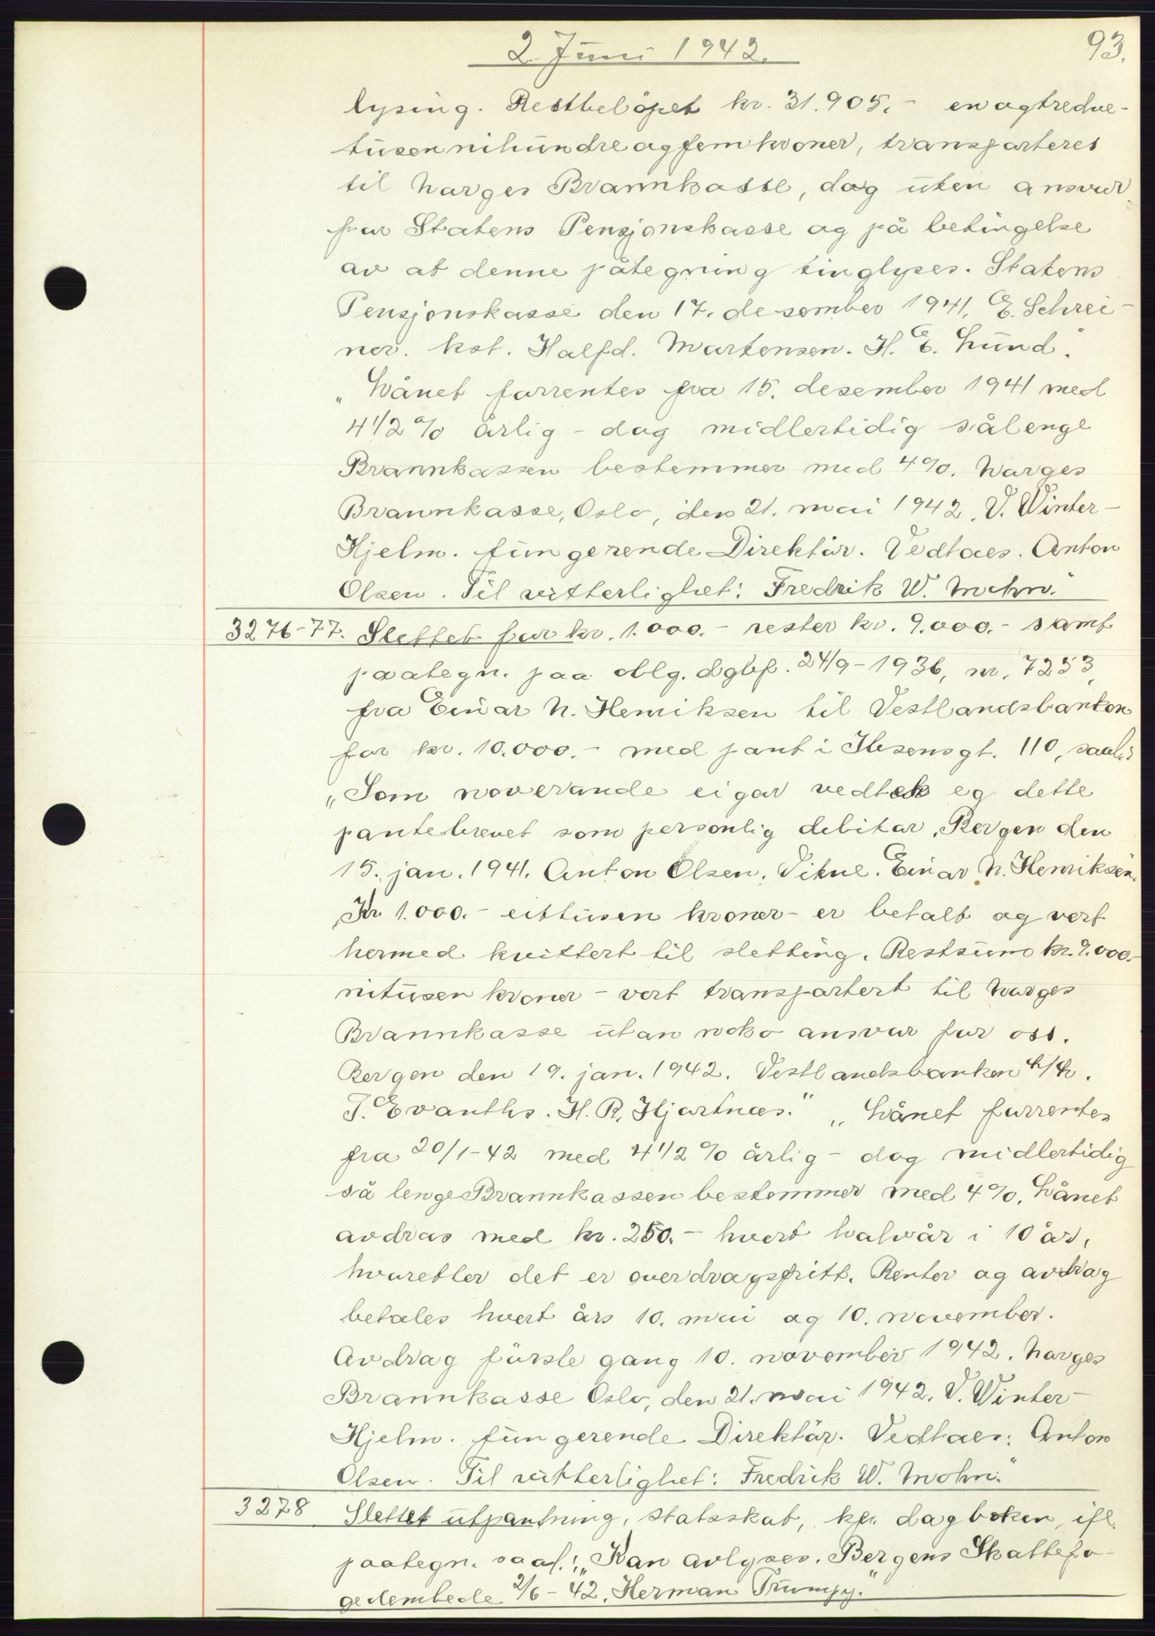 2 Juni 1942.
93.
lysing. Restbelöpet kr. 31.905.- en og tredve-
tusen nihundre og fem kroner, transporteres
til Norges Brannkasse, dog uten ansvar
for Statens Pensjonskasse og på betingelse
av at denne påtegning tinglyses. Statens
Pensjonskasse den 17. desember 1941. E. Schrei-
ner. kst. Halfd. Martensen. H. E. Lund."
"Lånet forrentes fra 15. desember 1941 med
4 1/2 % årlig - dog midlertidig sålenge
Brannkassen bestemmer med 4%. Norges
Brannkasse, Oslo, den 21. mai 1942. V. Winter-
Hjelm. fungerende Direktör. Vedtaes. Anton
Olsen. Til vitterlighet: Fredrik W. Mohn."
3276-77. Slettet for kr. 1.000.- rester kr. 9.000.- samt
paategn. paa oblg. dgbf. 24/9-1936, nr. 7253,
fra Einar N. Henriksen til Vestlandsbanken
for kr. 10.000.- med pant i Ibsensgt. 110, saal.:
"Som noverande eigar vedtek eg dette
pantebrevet som personlig debitor. Bergen den
15. jan. 1941. Anton Olsen. Vitne. Einar N. Henriksen.
Kr 1.000.- eittusen kroner - er betalt og vert
hermed kvittert til sletting. Restsum kr. 9.000.-
nitusen kroner - vert transportert til Norges
Brannkasse utan noko ansvar for oss.
Bergen den 19. jan. 1942. Vestlandsbanken
T. Evanths. H. R. Hjartnæs." "Lånet forrentes
fra 20/1-42 med 4 1/2 % årlig - dog midlertidig
så lenge Brannkassen bestemmer med 4%. Lånet
avdras med kr. 250.- hvert halvår i 10 år,
hvoretter det er overdragsfritt. Renter og avdrag
betales hvert års 10. mai og 10. november.
Avdrag förste gang 10. november 1942. Norges
Brannkasse Oslo, den 21. mai 1942. V. Winter-
Hjelm. fungerende Direktör. Vedtaes: Anton
Olsen. Til vitterlighet: Fredrik W. Mohn."
3278 Slettet utpantning, statsskat, dagboken, ifl.
paategn. saal.: "Kan avlyses. Bergens Skattefo-
gedembede 2/6-42. Herman Trumpy."